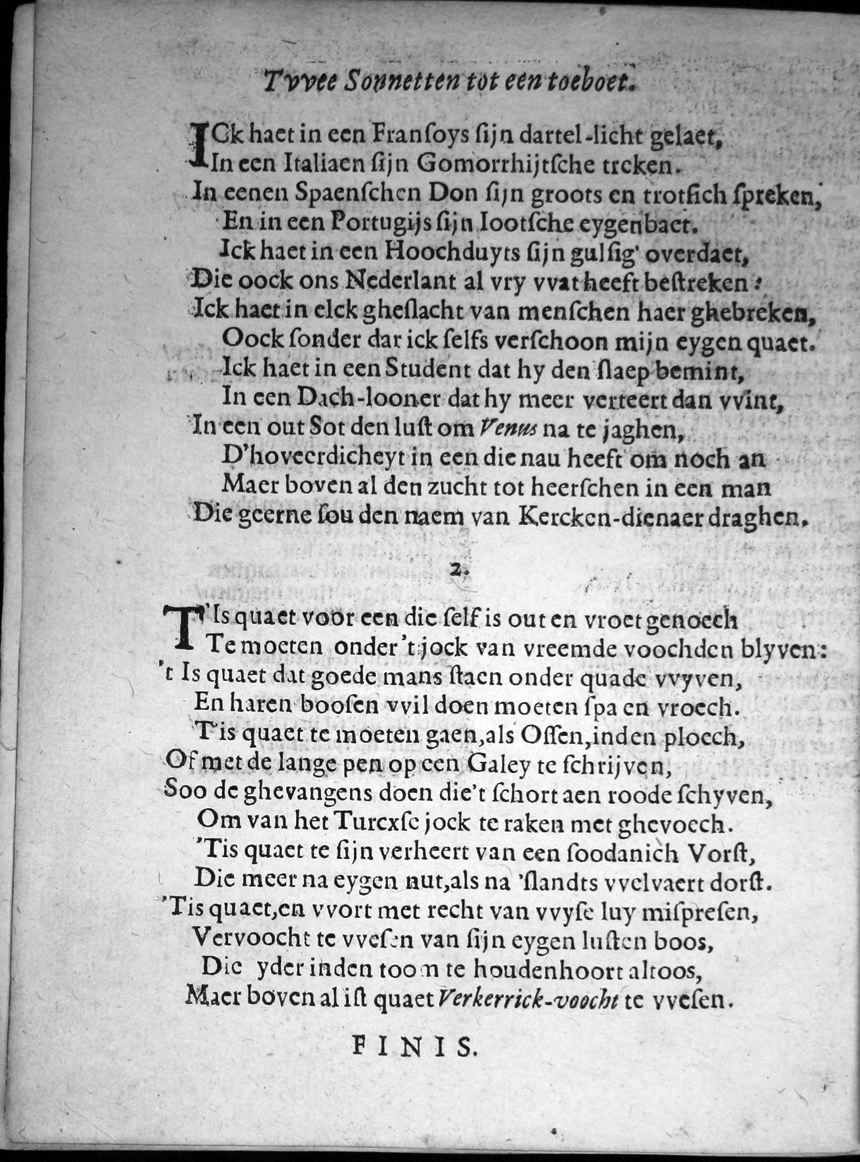 Tvvee Sonnetten tot een toeboet.
ICk haet in een Franſoys ſijn dartel-licht gelaet,
In een Italiaen ſijn Gomorrhijtſche treken.
In eenen Spaenſchen Don ſijn groots en trotſich ſpreken,
En in een Portugijs ſijn Iootſche eygenbaet.
Ick haet in een Hoochduyts ſijn gulſig' overdaet,
Die oock ons Nederlant al vry vvat heeft beſtreken:
Ick haet in elck gheſlacht van menſchen haer ghebreken,
Oock ſonder dat ick ſelfs verſchoon mijn eygen quaet.
Ick haet in een Student dat hy den ſlaep bemint,
In een Dach-looner dat hy meer verteert dan vvint,
In een out Sot den luſt om Venus na te jaghen,
D'hoveerdicheyt in een die nau heeft om noch an
Maer boven al den zucht tot heerſchen in een man
Die geerne ſou den naem van Kercken-dienaer draghen.
2.
T'Is quaet voor een die ſelf is out en vroet genoech
Te moeten onder 't jock van vreemde voochden blyven:
't Is quaet dat goede mans ſtaen onder quade vvyven,
En haren booſen vvil doen moeten ſpa en vroech.
T'is quaet te moeten gaen,als Oſſen,inden ploech,
Of met de lange pen op een Galey te ſchrijven,
Soo de ghevangens doen die't ſchort aen roode ſchyven,
Om van het Turcxſe jock te raken met ghevoech.
'Tis quaet te ſijn verheert van een ſoodanich Vorſt,
Die meer na eygen nut,als na 'ſlandts vvelvaert dorſt.
'Tis quaet,en vvort met recht van vvyſe luy miſpreſen,
Vervoocht te vveſen van ſijn eygen luſten boos,
Die yder inden toom te houdenhoort altoos,
Maer boven al iſt quaet Verkerrick-voocht te vveſen.
FINIS.